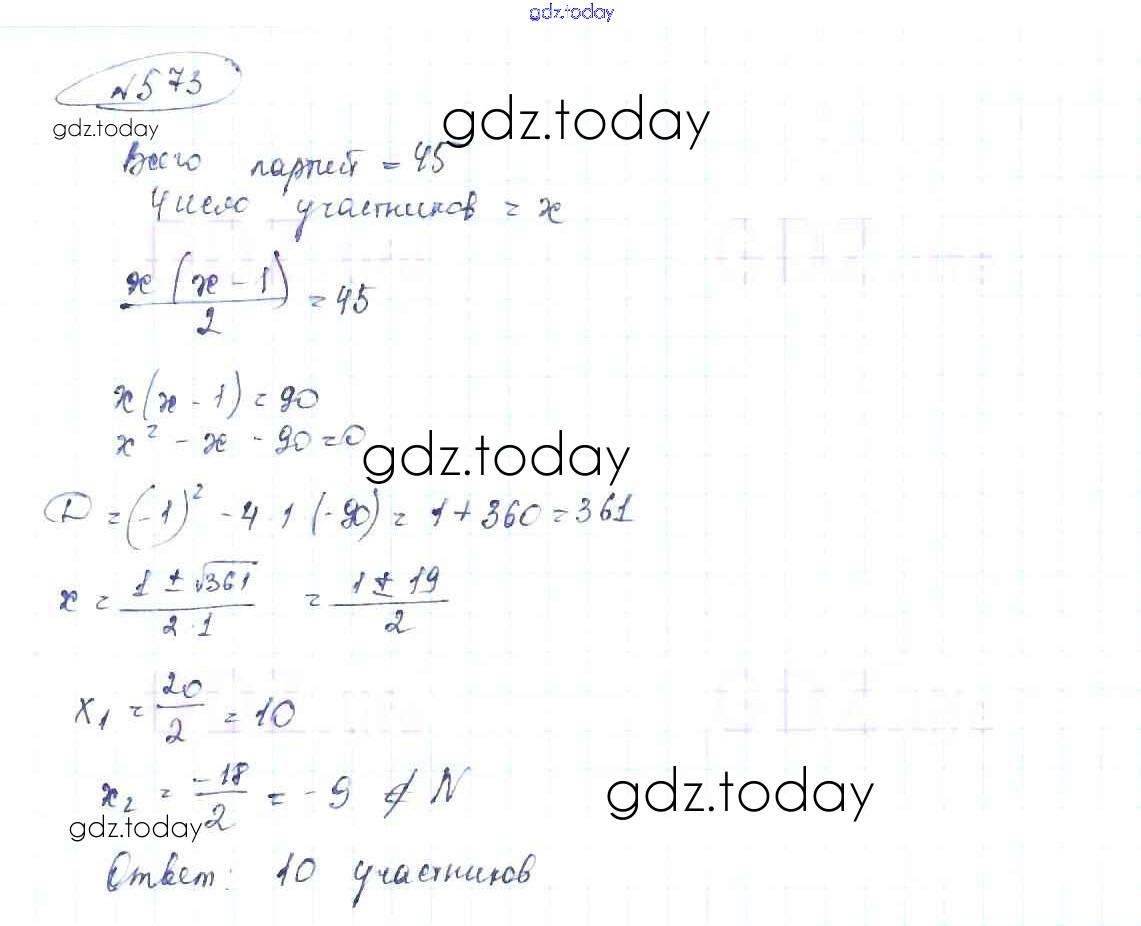 gdz.today
№573
gdz.today
gdz.today
Всего партий = 45
Число участников = x
x(x-1)/2 = 45
x(x-1) = 90
x² - x - 90 = 0
gdz.today
D = (-1)² - 4·1(-90) = 1 + 360 = 361
x = (1 ± √361)/(2·1) = (1 ± 19)/2
x₁ = 20/2 = 10
x₂ = -18/2 = -9 ∉ N
gdz.today
gdz.today
Ответ: 10 участников